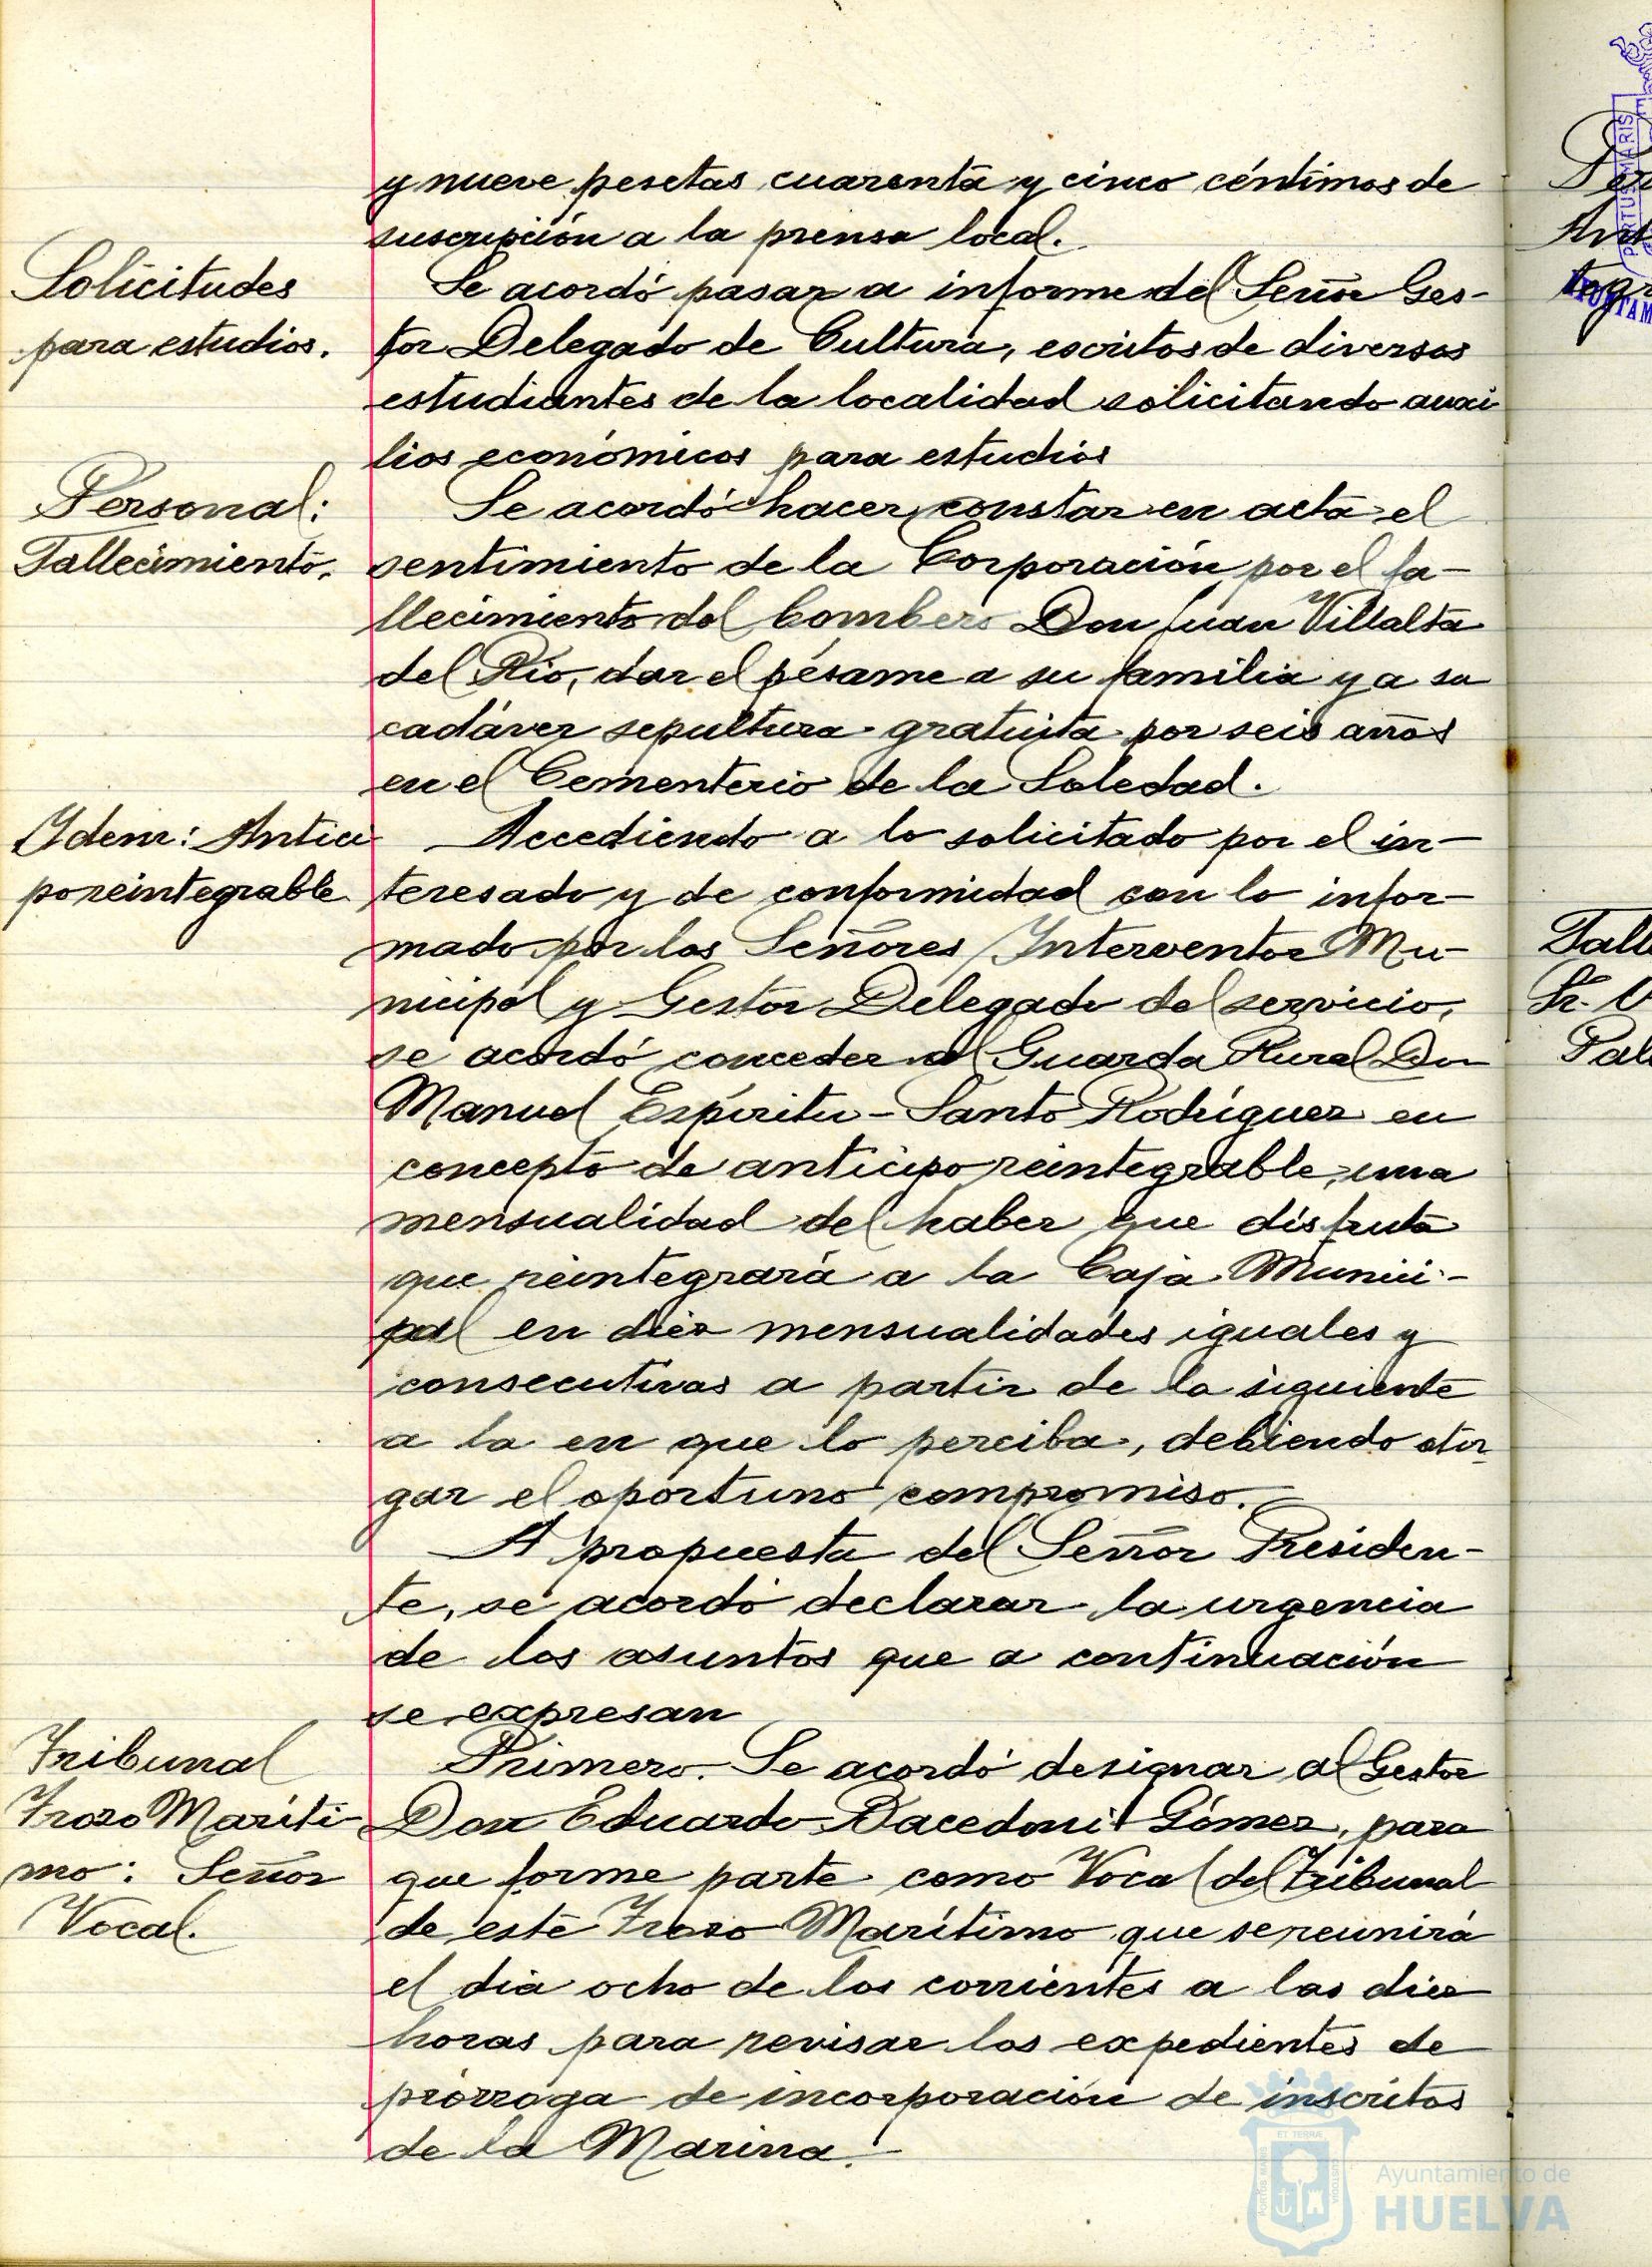 y nueve pesetas cuarenta y cinco céntimos de
suscripción a la prensa local.
Solicitudes
para estudios.
Se acordó pasar a informe del Señor Ges-
tor Delegado de Cultura, escritos de diversos
estudiantes de la localidad solicitando auxi
lios económicos para estudios
Personal:
Fallecimiento.
Se acordó hacer constar en acta el
sentimiento de la Corporación por el fa-
llecimiento del bombero Don Juan Villalta
del Río, dar el pésame a su familia y a su
cadáver sepultura gratuita por seis años
en el Cementerio de la Soledad.
Ydem: Antici
po reintegrable
Accediendo a lo solicitado por el in-
teresado y de conformidad con lo infor-
mado por los Señores Interventor Mu-
nicipal y Gestor Delegado del servicio,
se acordó conceder al Guarda Rural Don
Manuel Espíritu-Santo Rodríguez en
concepto de anticipo reintegrable, una
mensualidad del haber que disfruta
que reintegrará a la Caja Munici-
pal en diez mensualidades iguales y
consecutivas a partir de la siguiente
a la en que lo perciba, debiendo otor
gar el oportuno compromiso.
A propuesta del Señor Presiden-
te, se acordó declarar la urgencia
de los asuntos que a continuación
se expresan
Tribunal
Trozo Maríti
mo: Señor
Vocal.
Primero. Se acordó designar al Gestor
Don Eduardo Gómez, para
que forme parte como Vocal del Tribunal
de este Trozo Marítimo que se reunirá
el día ocho de los corrientes a las diez
horas para revisar los expedientes de
prórroga de incorporación de inscritos
de la Marina.
PORTUS MARIS
Ayuntamiento de
HUELVA